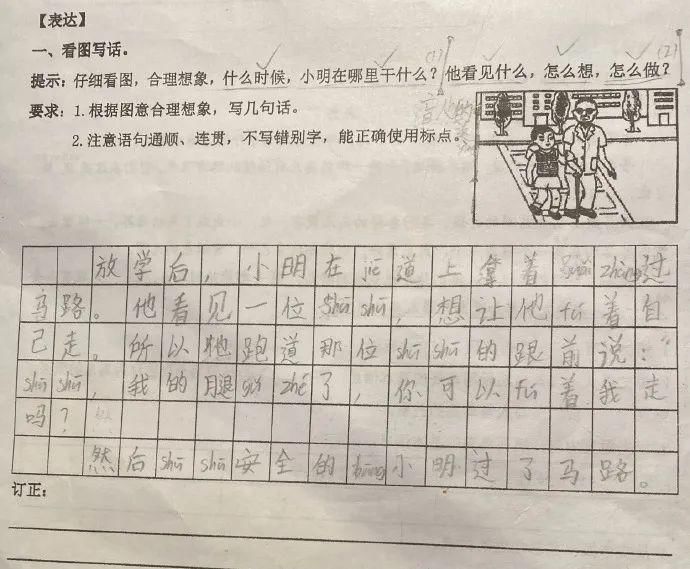 【表达】
一、看图写话。
提示：仔细看图，合理想象，什么时候，小明在哪里干什么？他看见什么，怎么想，怎么做？
(1)
(2)
要求：1.根据图意合理想象，写几句话。
2.注意语句通顺、连贯，不写错别字，能正确使用标点。
放学后，小明在jiē道上撑着 过
马路。他看见一位shū shū，想让他fú着自
己走。所以他跑道那位shū shū的跟前说：“
shū shū，我的腿gǔ zhé了，你可以fú着我走
吗？
然后shū shū安全的 小明过了马路。
订正：